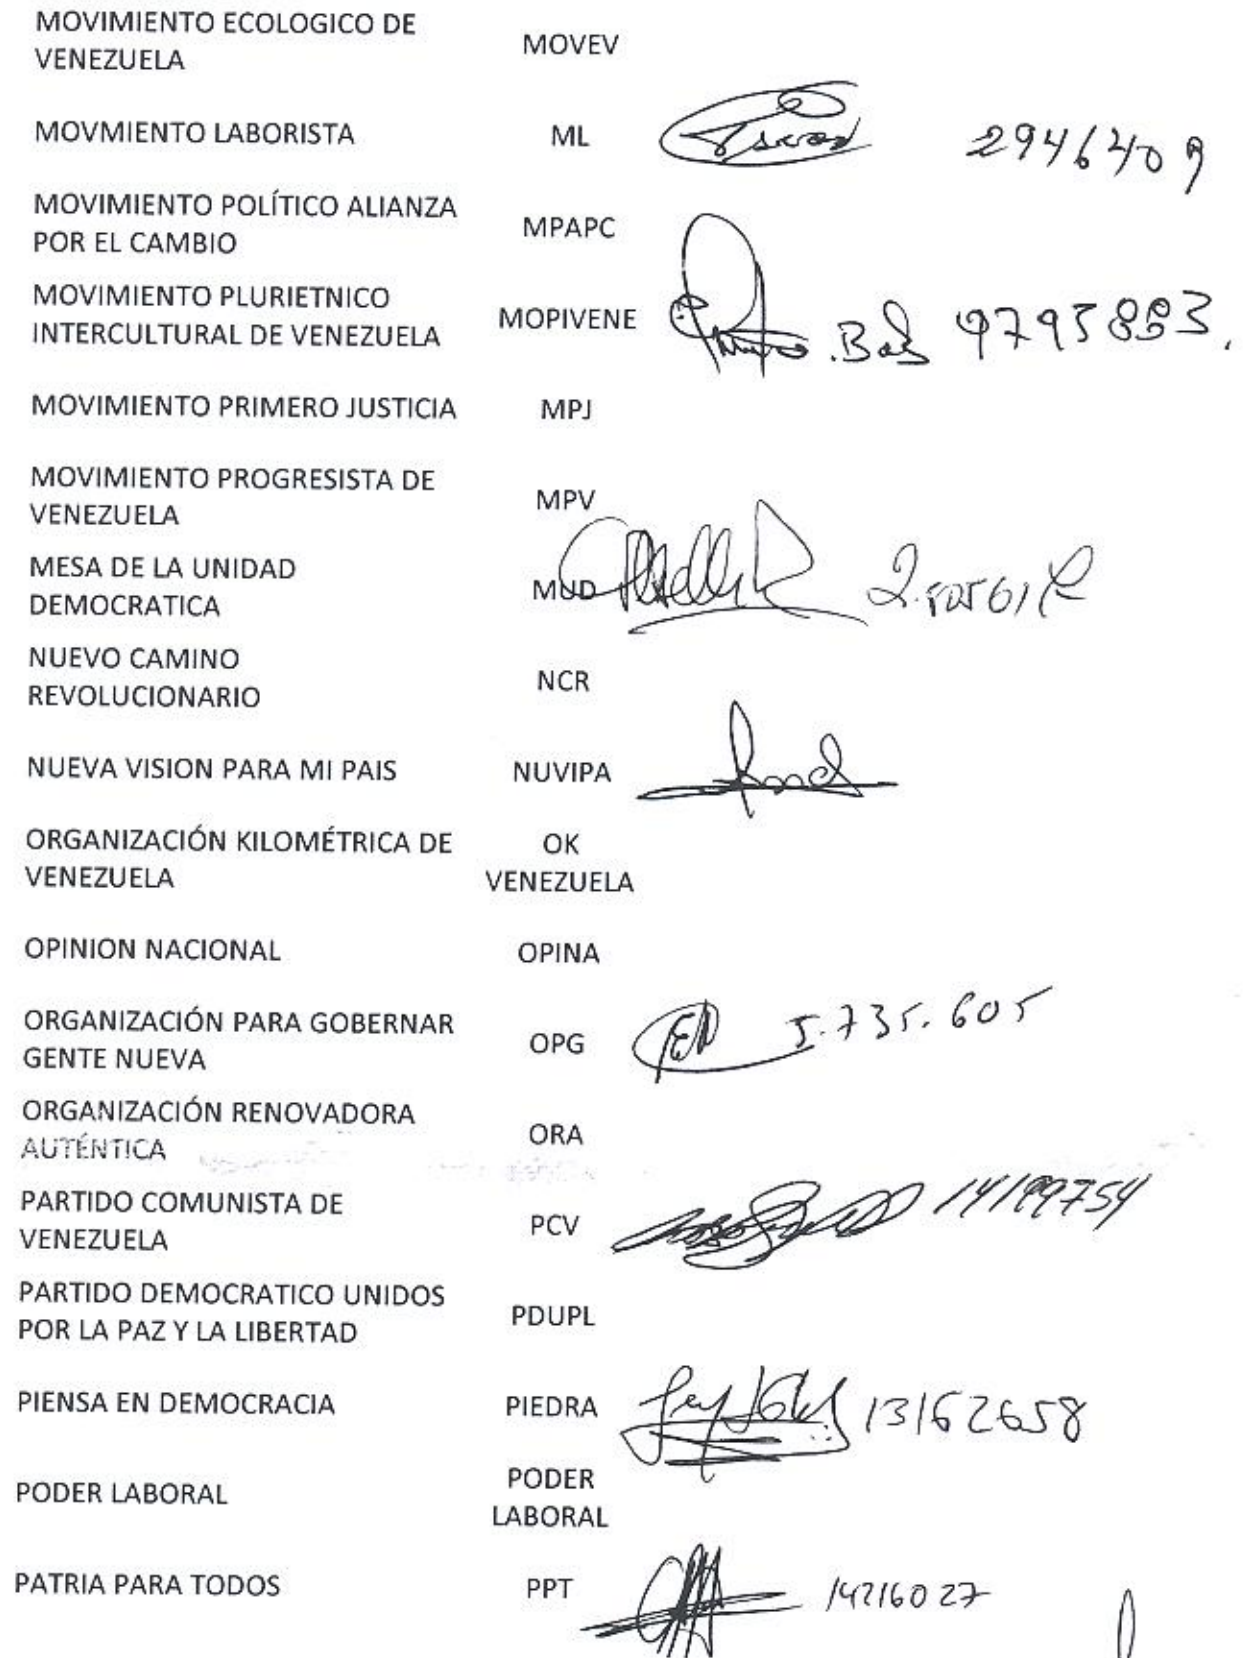 MOVIMIENTO ECOLOGICO DE
VENEZUELA
MOVEV
MOVMIENTO LABORISTA
ML
2946409
MOVIMIENTO POLÍTICO ALIANZA
POR EL CAMBIO
MPAPC
MOVIMIENTO PLURIETNICO
INTERCULTURAL DE VENEZUELA
MOPIVENE
9793883.
MOVIMIENTO PRIMERO JUSTICIA
MPJ
MOVIMIENTO PROGRESISTA DE
VENEZUELA
MPV
MESA DE LA UNIDAD
DEMOCRATICA
MUD
NUEVO CAMINO
REVOLUCIONARIO
NCR
NUEVA VISION PARA MI PAIS
NUVIPA
ORGANIZACIÓN KILOMÉTRICA DE
VENEZUELA
OK
VENEZUELA
OPINION NACIONAL
OPINA
ORGANIZACIÓN PARA GOBERNAR
GENTE NUEVA
OPG
5.735.605
ORGANIZACIÓN RENOVADORA
AUTÉNTICA
ORA
PARTIDO COMUNISTA DE
VENEZUELA
PCV
14199754
PARTIDO DEMOCRATICO UNIDOS
POR LA PAZ Y LA LIBERTAD
PDUPL
PIENSA EN DEMOCRACIA
PIEDRA
13162658
PODER LABORAL
PODER
LABORAL
PATRIA PARA TODOS
PPT
14216027